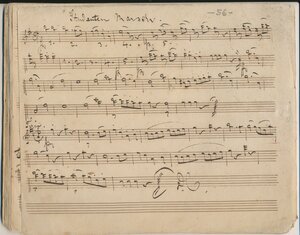 Studenten Marsch
-56-